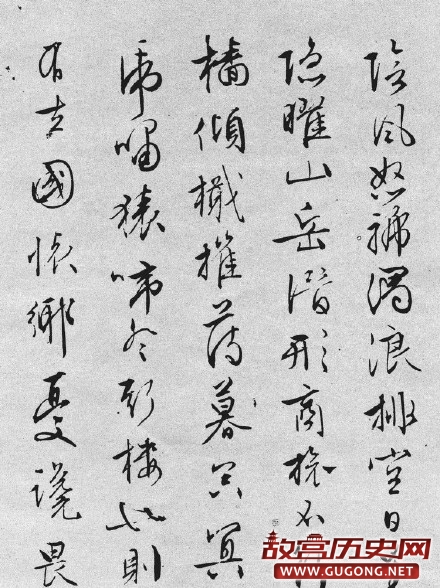 陰風怒號濁浪排空日
隱曜山岳潛形商旅不
檣傾檝摧薄暮冥冥
虎嘯猿啼登斯樓也則
有去國懷鄉憂讒畏
故宫历史网
WWW.GUGONG.NET